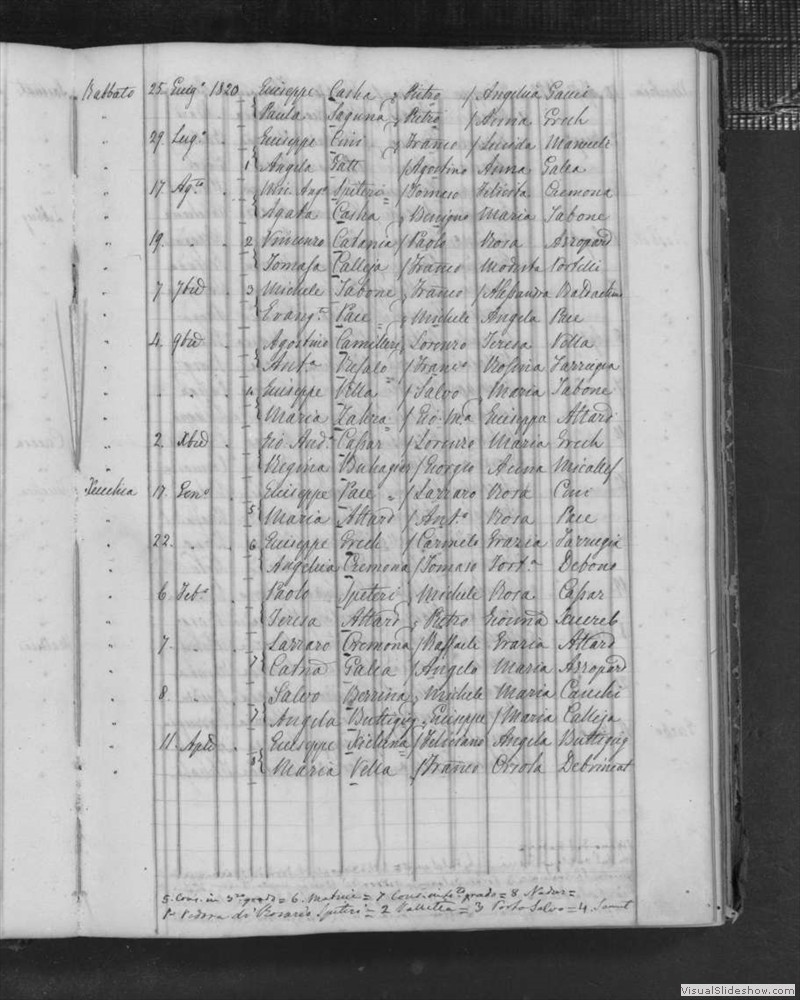 Rabbato 25. Giug.o 1820 Giuseppe Casha Pietro / Angelica Gauci
Paula Saguna Pietro / Anna Grech
29. Lug.o Giuseppe Cini Franco / Lucida Manuele
1 Angela Gatt / Agostino Anna Galea
17. Ag.to Spiteri / Tomaso Felicita Cremona
Agata Casha Benigno Maria Tabone
19. 2 Vincenzo Catania / Paolo Rosa Azzopard
Tomasa Calleja / Franco Modesta Portelli
7. 7bre 3 Michele Tabone Franco / Alessandra
Evang.a Pace = Michele Angela Pace
4. 9bre Agostino Camilleri Lorenzo Teresa Vella
Ant.a / Franc.o Rosina Farrugia
4 Giuseppe Vella / Salvo Maria Tabone
Maria / Gio Ma Giuseppa Attard
2. Xbre Gio And.a Caspar / Lorenzo Maria Grech
Regina Buhagiar / Giorgio Anna Micallef
Xeuchia 17. Gen.o Giuseppe Pace / Lazzaro Rosa Cini
5 Maria Attard / Ant.o Rosa Pace
22. 6 Giuseppe Grech / Carmelo Grazia Farrugia
Angelica Cremona / Tomaso Fort.a Debono
6. Feb.o Paolo Spiteri Michele Rosa Caspar
Teresa Attard Pietro Xuereb
7. Lazzaro Cremona / Raffaele Grazia Attard
7 Catna Galea / Angelo Maria Azzopard
8. Salvo Michele Maria Cauchi
7 Angela Buttigig Giuseppe / Maria Calleja
11. Aple Giuseppe / Feliciano Angela Buttigig
Maria Vella / Franco Orsola Debrincat
5. Cons. in 3.o grado = 6. Matrice = 7 grado = 8 Nadur =
di Rosario Spiteri = 2 Valletta = 3 Porto Salvo = 4
VisualSlideshow.com